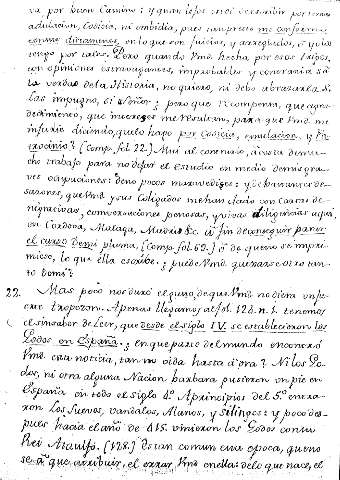 va por buen Camino; y quan lexos
adulacion, Codicia, ni embidia, pues tampoco me conformo
con sus dictamenes, en lo que son juiciosos, y arreglados, ò yo los
tengo por tales. Pero quando Vmd. hecha por esos trigos,
con opiniones extravagantes, improbables, y contrarias à
la verdad de la Historia, no quiero, ni debo abrazarlas.
Las impugno, si Señor; pero que recompensa, que agra-
decimiento, que me me resultan, para que Vmd. me
injurie diciendo, que lo hago por Codicia, emulacion, y Pa-
trocinio? (Comp. fol. 22.) Mui al contrario, à costa de mu-
cho trabajo para no dejar el estudio en medio de mis gra-
ves ocupaciones: de no pocos maravedises: y de hartos de-
sazones, que Vmd. y sus Coligados me han dado con Cartas de-
nigrativas, conversaciones penosas, y vivas diligencias aqui
en Cordova, Malaga, Madrid &c. à fin de conseguir parar
el curso de mi pluma, (Comp. fol. 69.) ò de que no se impri-
miese, lo que ella escribe. ¿puede Vmd. quexarse otro tan-
to de mi?
22. Mas poco nos duró el gusto, de que Vmd. no diera un fu-
erte tropezon. Apenas llegamos al fol. 126. n. 1. tenemos
el sinsabor de leer, que desde el siglo IV. se establecieron los
Godos en España; ¿en que parte del mundo encontró
Vmd. esta noticia, tan no oida hasta ahora? Ni los Go-
dos, ni otra alguna Nacion barbara pusieron un pie en
España en todo el siglo 4.º A principios del 5.º entra-
ron los Suevos, Vandalos, Alanos, y Silingos: y poco des-
pues hacia el año de 415. vinieron los Godos con su
Rei Ataulfo. (128.) Es tan comun esta epoca, que no
se à que atribuir, el errar Vmd. en ella: de lo que nace, el